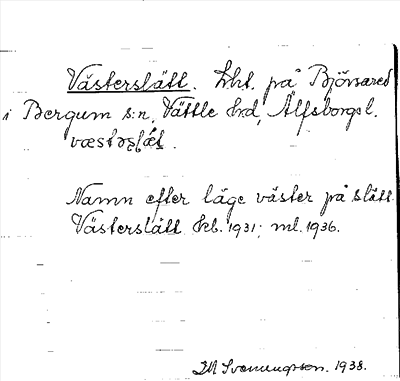 Västerslätt. Lht. på Björsared
i Bergum s:n, Vättle hrd, Älfsborgs l.
væstəʂḷæ̀t.
Namn efter läge väster på slätt.
Västerslätt kb. 1931; ml. 1936.
IM Svenungsson. 1938.